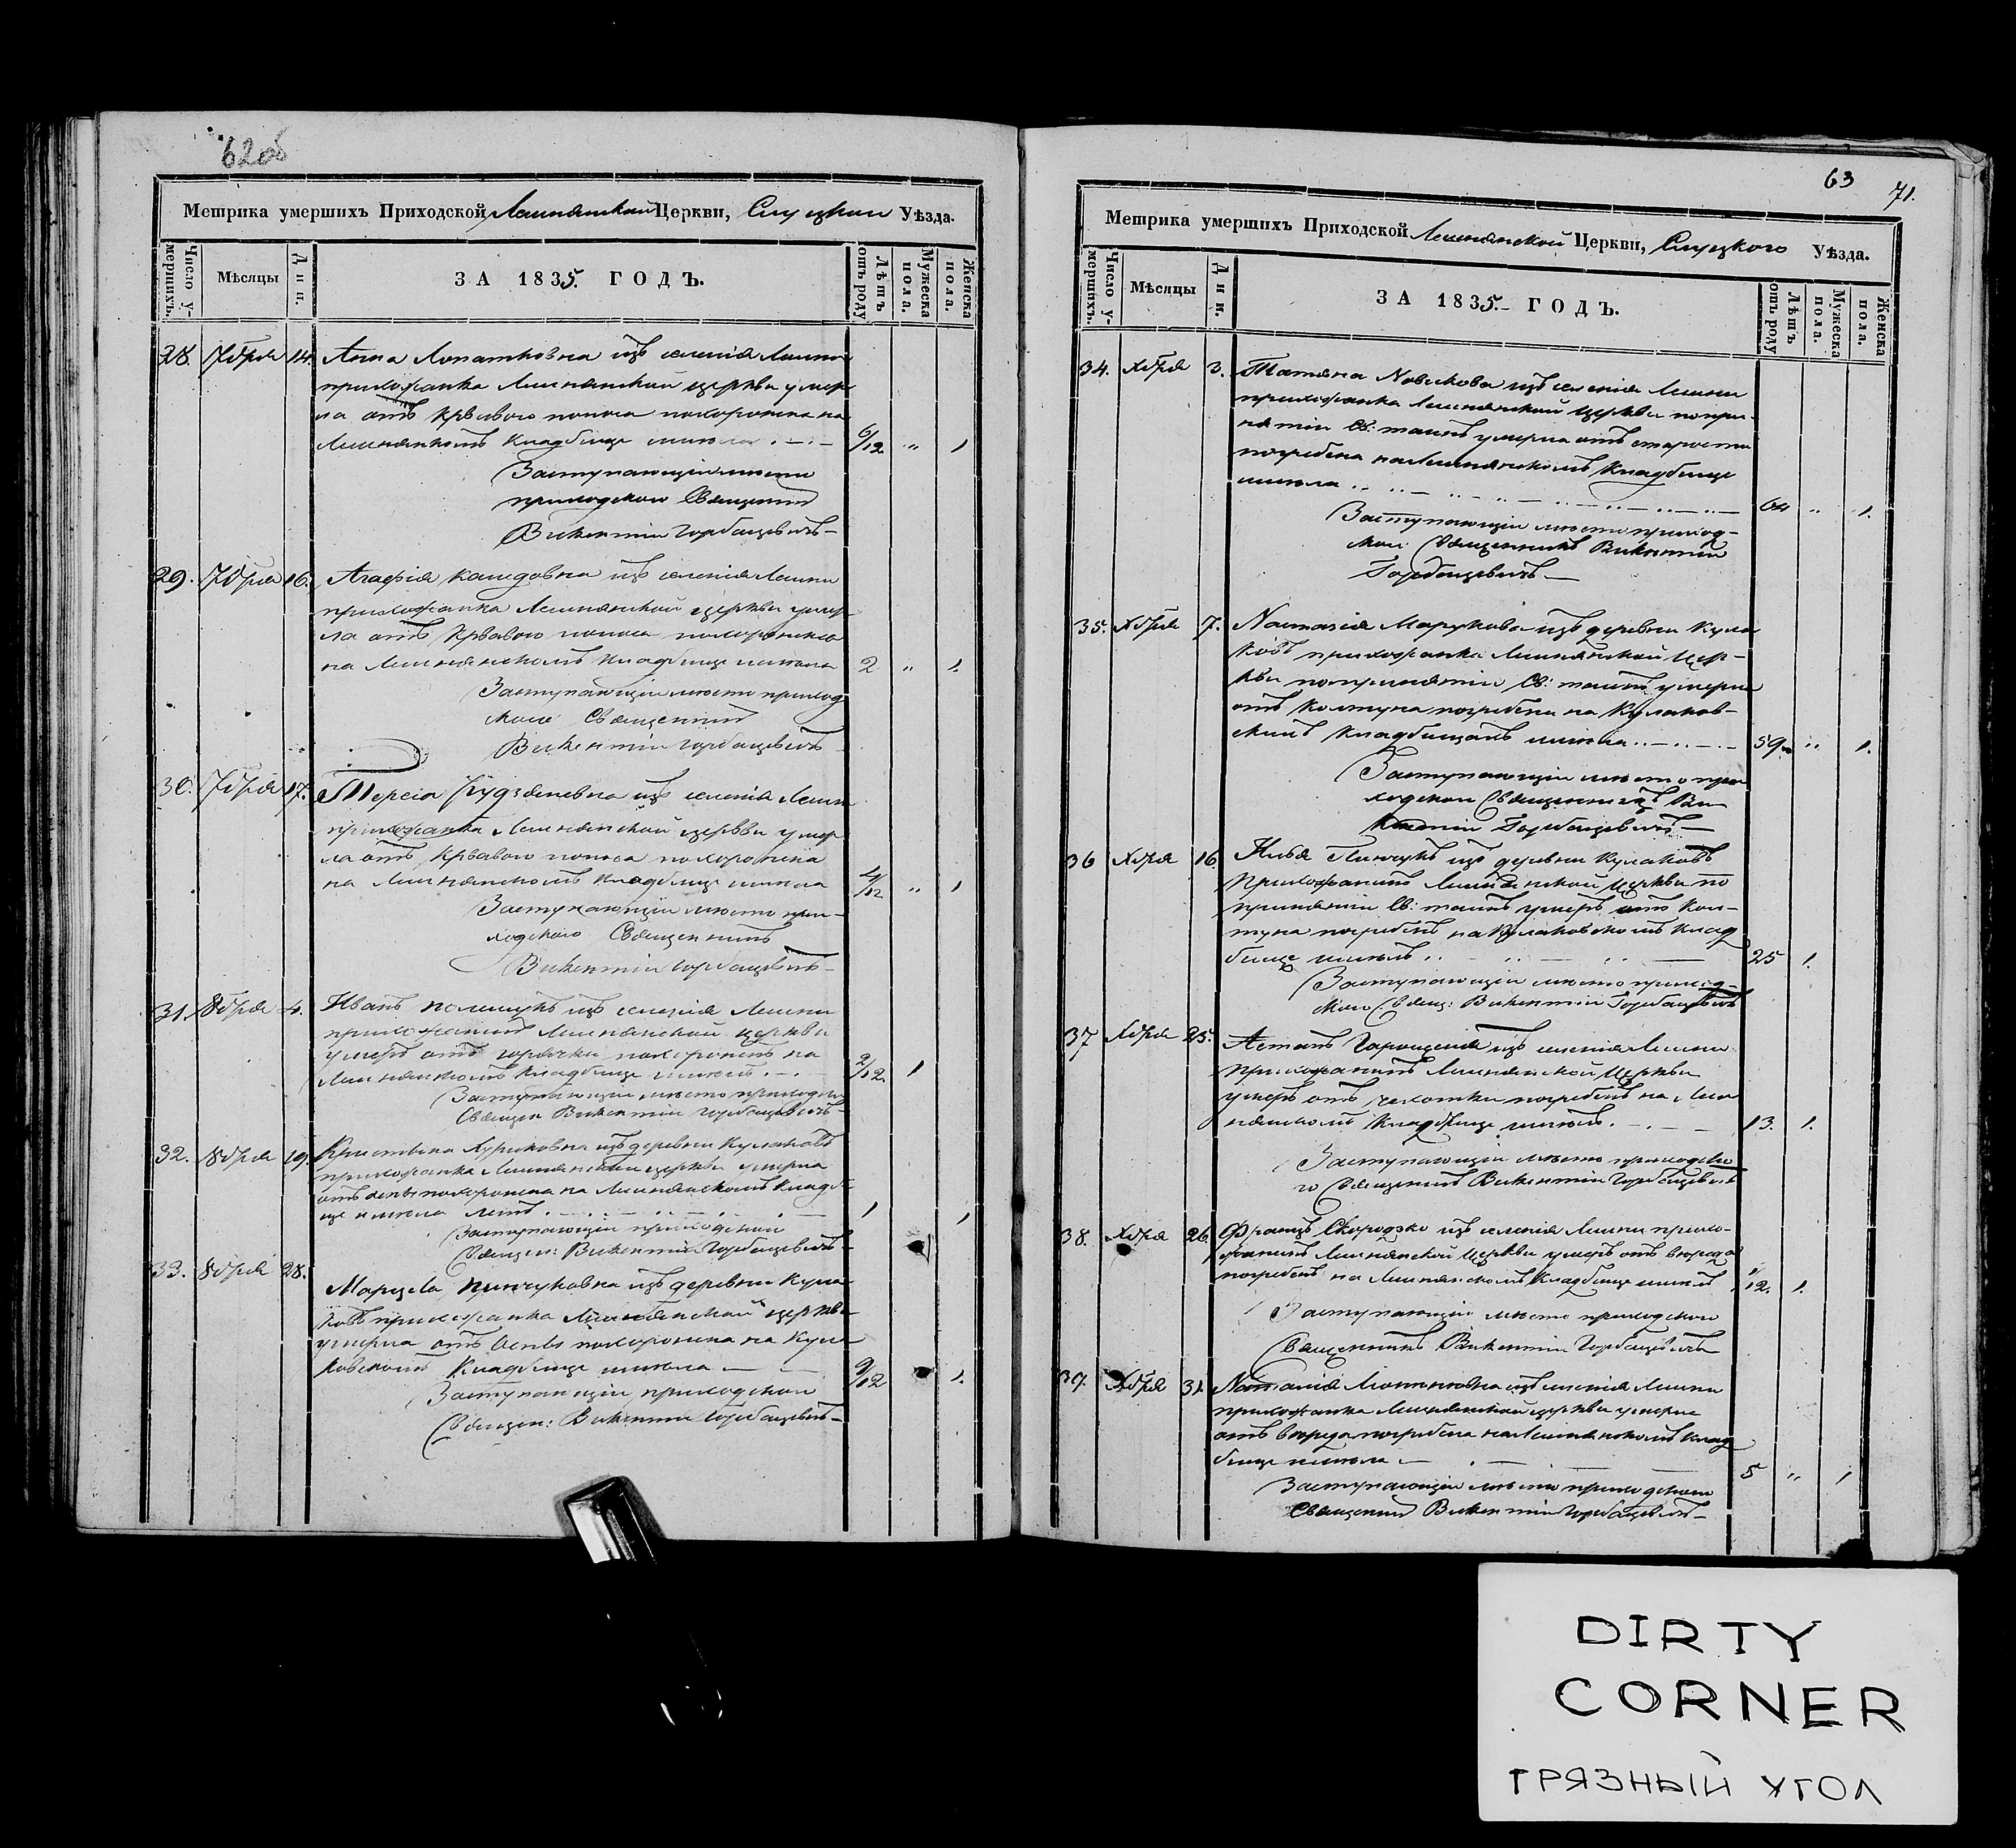 62об
Метрика умершихъ Приходской Лешнянской Церкви, Слуцкаго Уѣзда.
Число умершихъ.
Мѣсяцы
Дни.
ЗА 1835. ГОДЪ.
Лѣтъ отъ роду
Мужеска пола.
Женска пола.
28. 7бря 14. Анна из селенія Лешни
прихожанка Лешнянской церкви умер
ла отъ крвавого поноса похоронена на
Лешнянскомъ кладбище имела 6/12 „ 1
Заступающій место
приходского Священникъ
Викентий Горбацевичъ
29. 7бря 16. Агафія из селенія Лешни
прихожанка Лешнянской церкви умер
ла отъ крвавого поноса похоронена
на Лешнянскомъ кладбище имела 2 „ 1.
Заступающій место приход
ского Священникъ
Викентій Горбацевичъ
30. 7бря 17. изъ селенія Лешни
прихожанка Лешнянской церкви умер
ла отъ крвавого поноса похоронена
на Лешнянскомъ кладбище имела 4/12 „ 1
Заступающій место при-
ходского Священникъ
Викентій Горбацевичъ
31. 8бря 4. Иванъ изъ селенія Лешни
прихожанинъ Лешнянской церкви
умеръ отъ горячки похороненъ на
Лешнянскомъ кладбище имелъ 2/12. 1
Заступающій место приходско
Священ Викентій Горбацевичъ
32. 8бря 19. изъ деревни Кулаковъ
прихожанка Лешнянской церкви умерла
отъ оспы похоронена на Лешнянскомъ кладб
ще имела летъ 1 1
Заступающій приходской
Священ: Викентій Горбацевичъ
33. 8бря 28.
Марцела Пинчуковна изъ деревни Кула
ковъ прихожанка Лешнянской церкви
умерла отъ оспы похоронена на Кула
ковскомъ Кладбище имела 9/12 1.
Заступающій приходской
Священ: Викентій Горбацевичъ
63
71.
Метрика умершихъ Приходской Лешнянской Церкви, Слуцкого Уѣзда.
Число умершихъ.
Мѣсяцы
Дни.
ЗА 1835. ГОДЪ.
Лѣтъ отъ роду
Мужеска пола.
Женска пола.
34. Хбря 3. Татяна Новикова изъ селенія Лешни
прихожанка Лешнянской церкви по при-
нятіи Св: таинъ умерла отъ старости
погребена на Лешнянскомъ Кладбище
имела „ 1.
Заступающій место приход-
ского Священникъ Викентій
Горбацевичъ
35. Хбря 7. изъ деревни Кула
ковъ прихожанка Лешнянской цер-
кви по принятіи Св: таинъ умерла
отъ Колтуна погребена на Кулаков-
скимъ кладбищамъ имела 59 „ 1.
Заступающій место при
ходского Священникъ Ви
кентій Горбацевичъ
36 Хбря 16 Илья Пинчукъ изъ деревни Кулаковъ
Прихожанинъ Лешнянской Церкви по
принятіи Св: таинъ умеръ отъ Кол-
туна погребенъ на Кулаковскомъ клад
бище имелъ 25 1.
Заступающій место приход-
ского Свящ: Викентій Горбацевичъ
37 Хбря 25. изъ селенія Лешни
Прихожанинъ Лешнянской Церкви
умеръ отъ чахотки погребенъ на Леш
нянскомъ Кладбище имелъ. 13. 1.
Заступающій место приходско
го Священникъ Викентій Горбацевичъ
38. Хбря 26. Францъ Скородзко изъ селенія Лешни прихо-
жанинъ Лешнянской Церкви умеръ отъ вереда
погребенъ на Лешнянскомъ Кладбище имелъ 1/12. 1.
Заступающій место приходского
Священникъ Викентій Горбацевичъ
39. Хбря 31. Наталія изъ селенія Лешни
прихожанка Лешнянской церкви умерла
отъ вереда погребена на Лешнянскомъ клад
бище имела 5 „ 1
Заступающій место приходского
Священникъ Викентій Горбацевичъ
DIRTY
CORNER
ГРЯЗНЫЙ УГОЛ